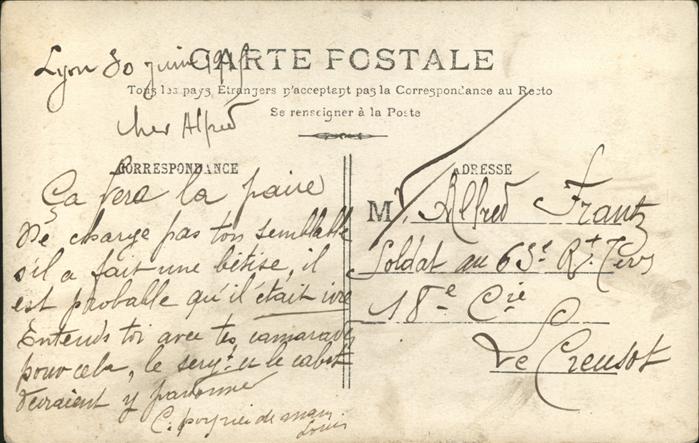 CARTE POSTALE
Lyon 30 juin
Tous les pays Étrangers n'acceptent pas la Correspondance au Recto
Se renseigner à la Poste
Cher Alfred
CORRESPONDANCE
Ça fera la paire
Ne charge pas ton semblable
s'il a fait une bêtise, il
est probable qu'il était ivre
Entends toi avec tes camarades
pour cela, le serg.t et le cabot
devraient y pardonner
C. poignée de main
Louis
ADRESSE
M. Alfred Frantz
Soldat au 63e Rt. Terr
18e Cie
Le Creusot